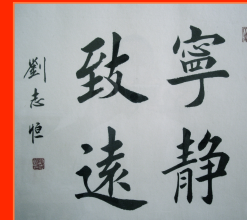 寧静
致遠
劉志恒